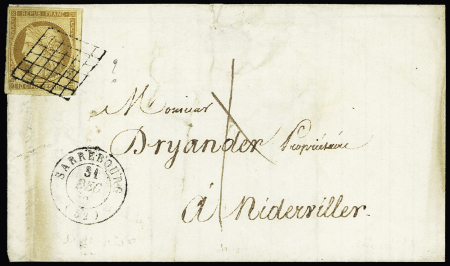 REPUB. FRANC.
Monsieur
Dryander Propriétaire
à Niderviller.
SARREBOURG
31
DEC